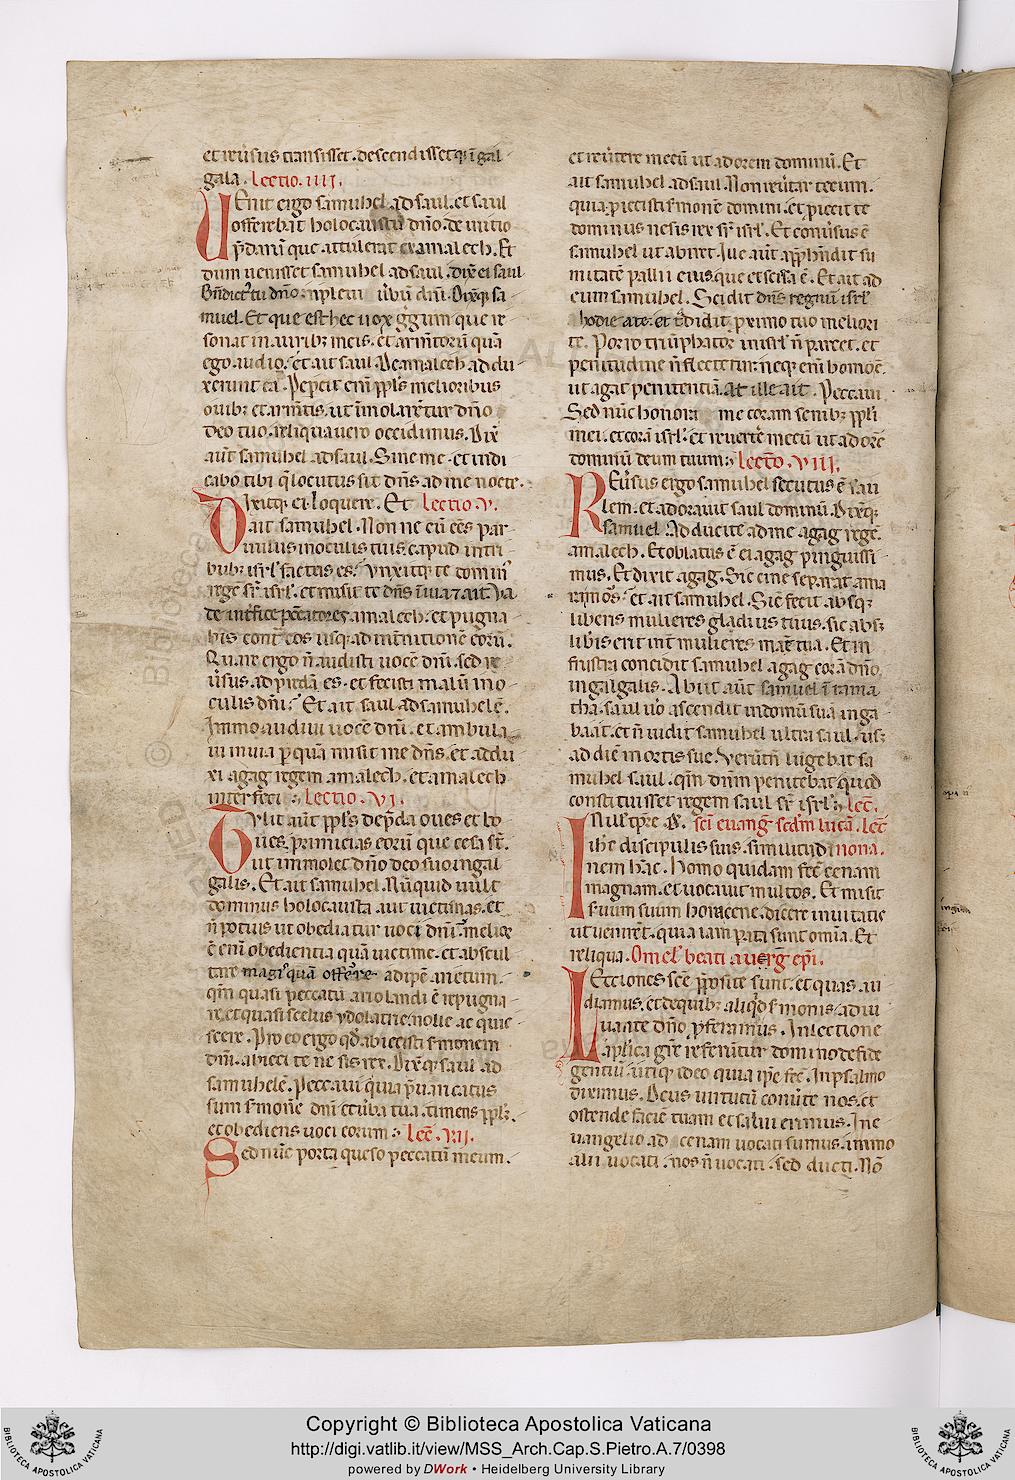 et reu̾sus transisset. descendissetq; ī gal
gala. Lectio. iiii.
UEnit ergo samuhel ad saul. et saul
offerebat holocaustū dn̄o. de initio
p̄darū que attulerat ex amalech. Et
dum uenisset samuhel ad saul. dix̄ ei saul
Bn̄dict᾽ tu dn̄o. inpleui u̾bū dn̄i. Dix̄q; sa
muel. Et que est hec uox gͥgum que re
sonat in aurib; meis. et arm̄torū quā
ego audio. et ait saul. De amalech addu
xerunt ea. Pepcit eni᷇ ppl̄s melioribus
ouib; et arm̄tis. ut īmolarent᷑ dn̄o
deo tuo. reliqua uero occidimus. Dix̄
aut᷇ samuhel ad saul. Sine me. et indi
cabo tibi q̄ locutus sit dn̄s ad me nocte.
Dixitq; ei. loquere. Et Lectio. v.
ait samuhel. Nonne cū eēs par
uulus in oculis tuis. capud in tri
bub; isrl̄ factus es. Vnxitq; te domin᾽
rege sr̄ isrl̄. et misit te dn̄s ī uia 7 ait. Va
de int̄fice pēcatores amalech. et pugna
bis contͣ eos usq; ad int̄nitionē eorū.
Quare ergo n̄ audisti uocē dn̄i. sed re
u̾sus ad predā es. et fecisti malū in o
culis dn̄i. Et ait saul ad samuhelē.
Immo audiui uocē dn̄i. et ambula
ui in uia p quā misit me dn̄s. et addu
xi agag regem amalech. et amalech
interfeci. Lectio. vi.
Tvlit aut᷇ ppl̄s de p̄da oues et bo
ues. primicias eorū que cesa st̄.
ut immolet dn̄o deo suo in gal
galis. Et ait samuhel. Nūquid uult
dominus holocausta aut uictimas. et
n̄ potius ut obediatur uoci dn̄i. melior
ē eni᷇ obedientia quā uictime. et abscul
tare magͥs quā offer̄re adipē arietum.
qm̄ quasi peccatū ariolandi ē repugna
re. et quasi scelus ydolatrie. nolle ac quie
scere. Pro eo ergo qd̄ abiecisti s̾monem
dn̄i. abieci te ne sis rex. Dix̄q; saul ad
samuhelē. Peccaui quia p̄uaricatus
sum s̾monē dn̄i et u̾ba tua. timens ppl̄z.
et obediens uoci eorum. Lec̄. vii.
Sed nūc porta queso peccatū meum.
et reu̾tere mecū ut adorem dominū. Et
ait samuhel ad saul. Non reu̾tar tecum.
quia piecisti s̾monē domini. et piecit te
dominus ne sis rex sr̄ isrl̄. Et conu̾sus ē
samuhel ut abiret. Ille aut᷇ app̄hn̄dit su
mitatē pallii eius. que et scissa ē. Et ait ad
eum samuhel. Scidit dn̄s regnū isrl̄
hodie a te. et tͣdidit pximo tuo meliori
te. Porro triūphator in isrl̄ n̄ parcet. et
penitudine n̄ flectetur. neq; eni᷇ homo ē.
ut agat penitentiā. At ille ait. Peccaui
Sed nūc honora me coram senib; ppl̄i
mei. et corā isrl̄. et reuertē mecū ut adorē
dominū deum tuum. Lectō. viii.
REu̾sus ergo samuhel secutus ē sau
lem. et adorauit saul dominū. Dix̄q;
samuel. Adducite ad me agag rege᷇
amalech. Et oblatus ē ei agag pinguissi
mus. Et dixit agag. Siccine separat ama
ra mors. et ait samuhel. Sic fecit absq;
liberis mulieres gladius tuus. sic absq;
lib̄is erit int̄ mulieres mat̄ tua. Et in
frustra concidit samuhel agag corā dn̄o
in galgalis. Abiit aut᷇ samuel ī rama
tha. saul u̾o ascendit in domū suā in ga
baat. et n̄ uidit samuhel ultra saul. usq;
ad diē mortis sue. Verūtn̄ lugebat sa
muhel saul. qm̄ dn̄m penitebat quod
constituisset regem saul sr̄ isrl̄. Lec̄.
INill̾. tp̄re. &. sc̄i euang̾. scd̾m lucā. Lec̄
ih̄c discipulis suis. similitudi nona.
nem hāc. Homo quidam fec̄ cenam
magnam. et uocauit multos. Et misit
s̾uum suum hora cene. dicere inuitatis
ut uenirēt. quia iam parata sunt omīa. Et
reliqua. Omel᾽ beati augg̾ ep̄i.
LEctiones sc̄e pposite sunt. et quas au
diamus. et de quib; aliqͥd s̾monis adiu
uante dn̄o. pferamus. In lectione
aplica gr̄e referūtur domino de fide
gentiū. utiq; ideo quia ip̄e fec̄. In psalmo
diximus. Deus uirtutū conu̾te nos. et
ostende faciē tuam et salui erimus. In e
uangelio ad cenam uocati sumus. immo
alii uocati. nos n̄ uocati. sed ducti. Nō
Copyright © Biblioteca Apostolica Vaticana
http://digi.vatlib.it/view/MSS_Arch.Cap.S.Pietro.A.7/0398
powered by DWork • Heidelberg University Library
BIBLIOTECA APOSTOLICA VATICANA
BIBLIOTECA APOSTOLICA VATICANA